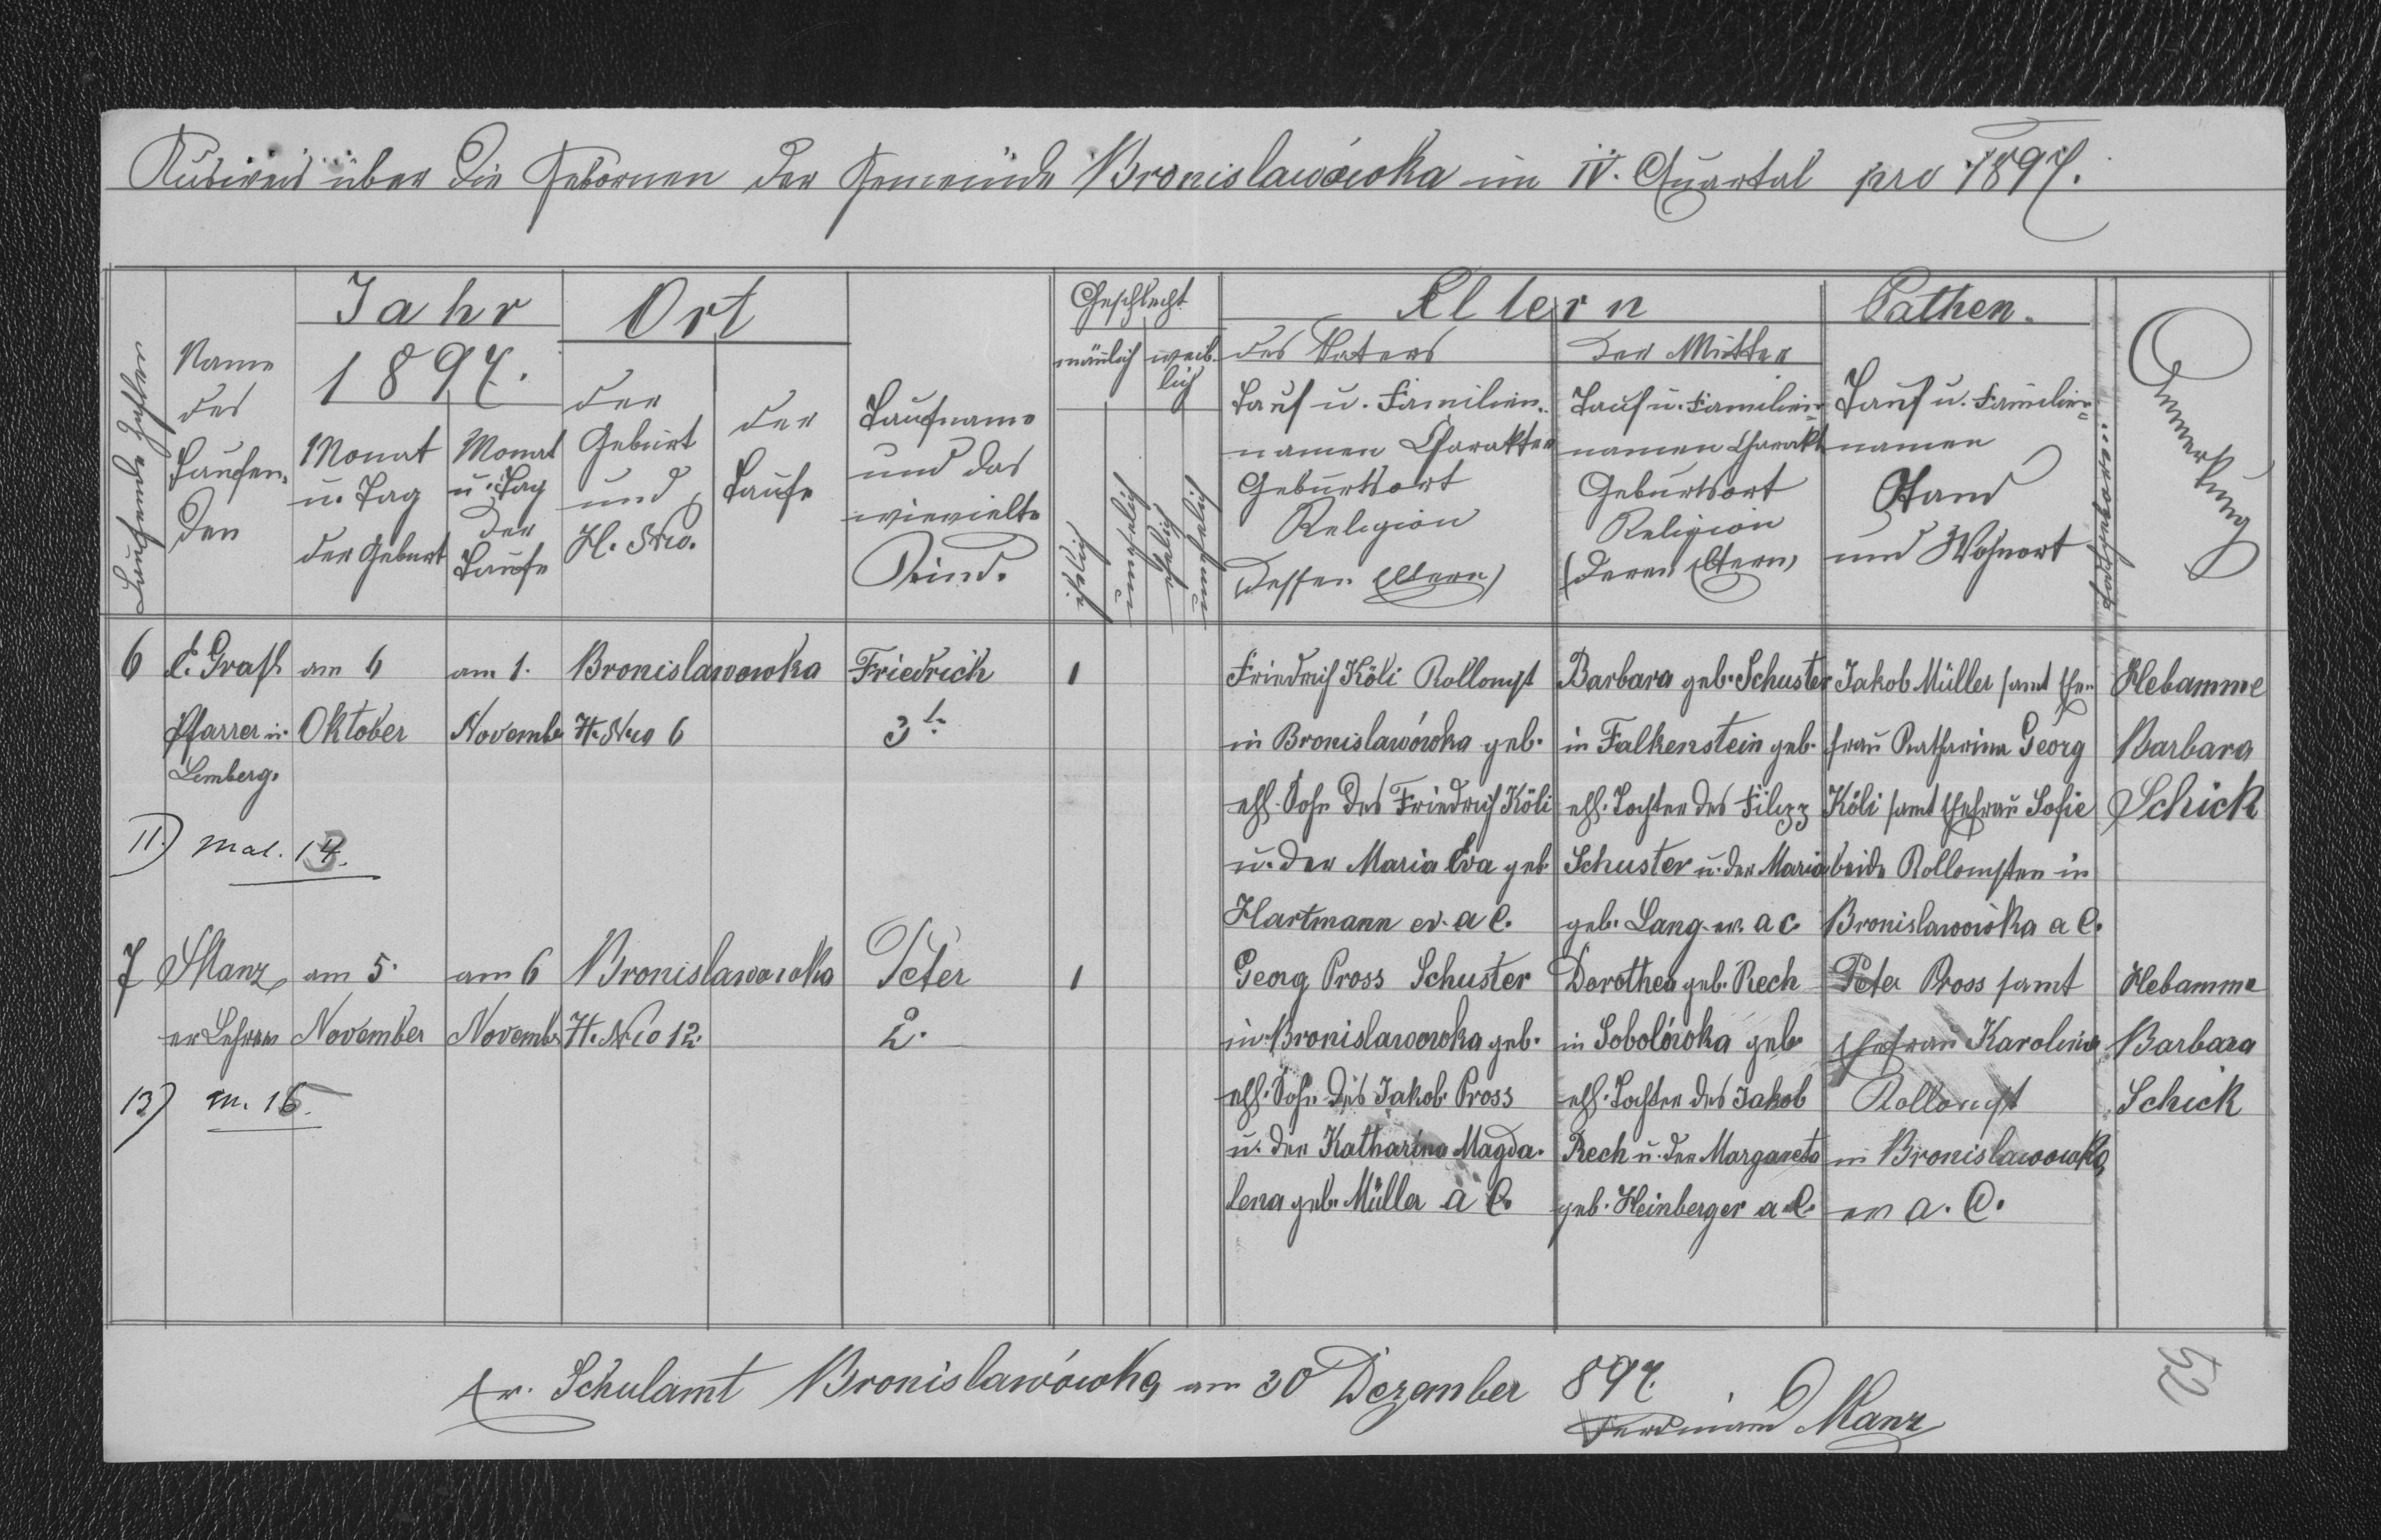 Ausweis über die Gebornen der Gemeinde Bronislawówka im IV. Quartal pro 1897.
Laufende Zahlen
Name
des
Taufen-
den
Jahr
1897.
Monat
u. Tag
der Geburt
Monat
u. Tag
der
Taufe
Ort
der
Geburt
und
H. Nro.
der
Taufe
Taufname
und das
wievielte
Kind.
Geschlecht
mänlich
weib-
lich
ehelich
unehelich
ehelich
unehelich
Eltern
des Vaters
Tauf u. Familien-
namen Charakter
Geburtsort
Religion
(dessen Eltern)
der Mutter
Tauf u. Familien-
namen Charakt
Geburtsort
Religion
(deren Eltern)
Pathen.
Tauf u. Familien-
namen
Stand
und Wohnort
todtgeboren
Anmerkung
6
E. Grafl
Pfarrer in
Lemberg.
am 6
Oktober
am 1.
Novemb
Bronislawowka
H. Nro 6
Friedrich
3t.
1
Friedrich Köli
in Bronislawówka geb.
ehl. Sohn des Friedrich Köli
u. der Maria Eva geb.
Hartmann ev. a C.
Barbara geb. Schuster
in Falkenstein geb.
ehl. Tochter des Filipp
Schuster u. der Maria
geb. Lang ev. a c.
Jakob Müller samt Ehe-
frau Katharina Georg
Köli samt Ehefrau Sofie
beide in
Bronislawowka a C.
Hebamme
Barbara
Schick
11.) mat. 14.
7
Manz
ev Lehrer
am 5.
November
am 6
Novemb
Bronislawowka
H. Nro 12.
Peter
2.
1
Georg Pross Schuster
in Bronislawowka geb.
ehl. Sohn des Jakob Pross
u. der Katharina Magda-
lena geb. Müller a C.
Dorothea geb. Rech
in Sobolówka geb.
ehl. Tochter des Jakob
Rech u. der Margareta
geb. Heinberger a C.
Peter Pross samt
Ehefrau Karolina
in Bronislawowka
ev a. C.
Hebamme
Barbara
Schick
13) m. 16.
Ev. Schulamt Bronislawówka am 30 Dezember 897.
Ferdinand Manz
52